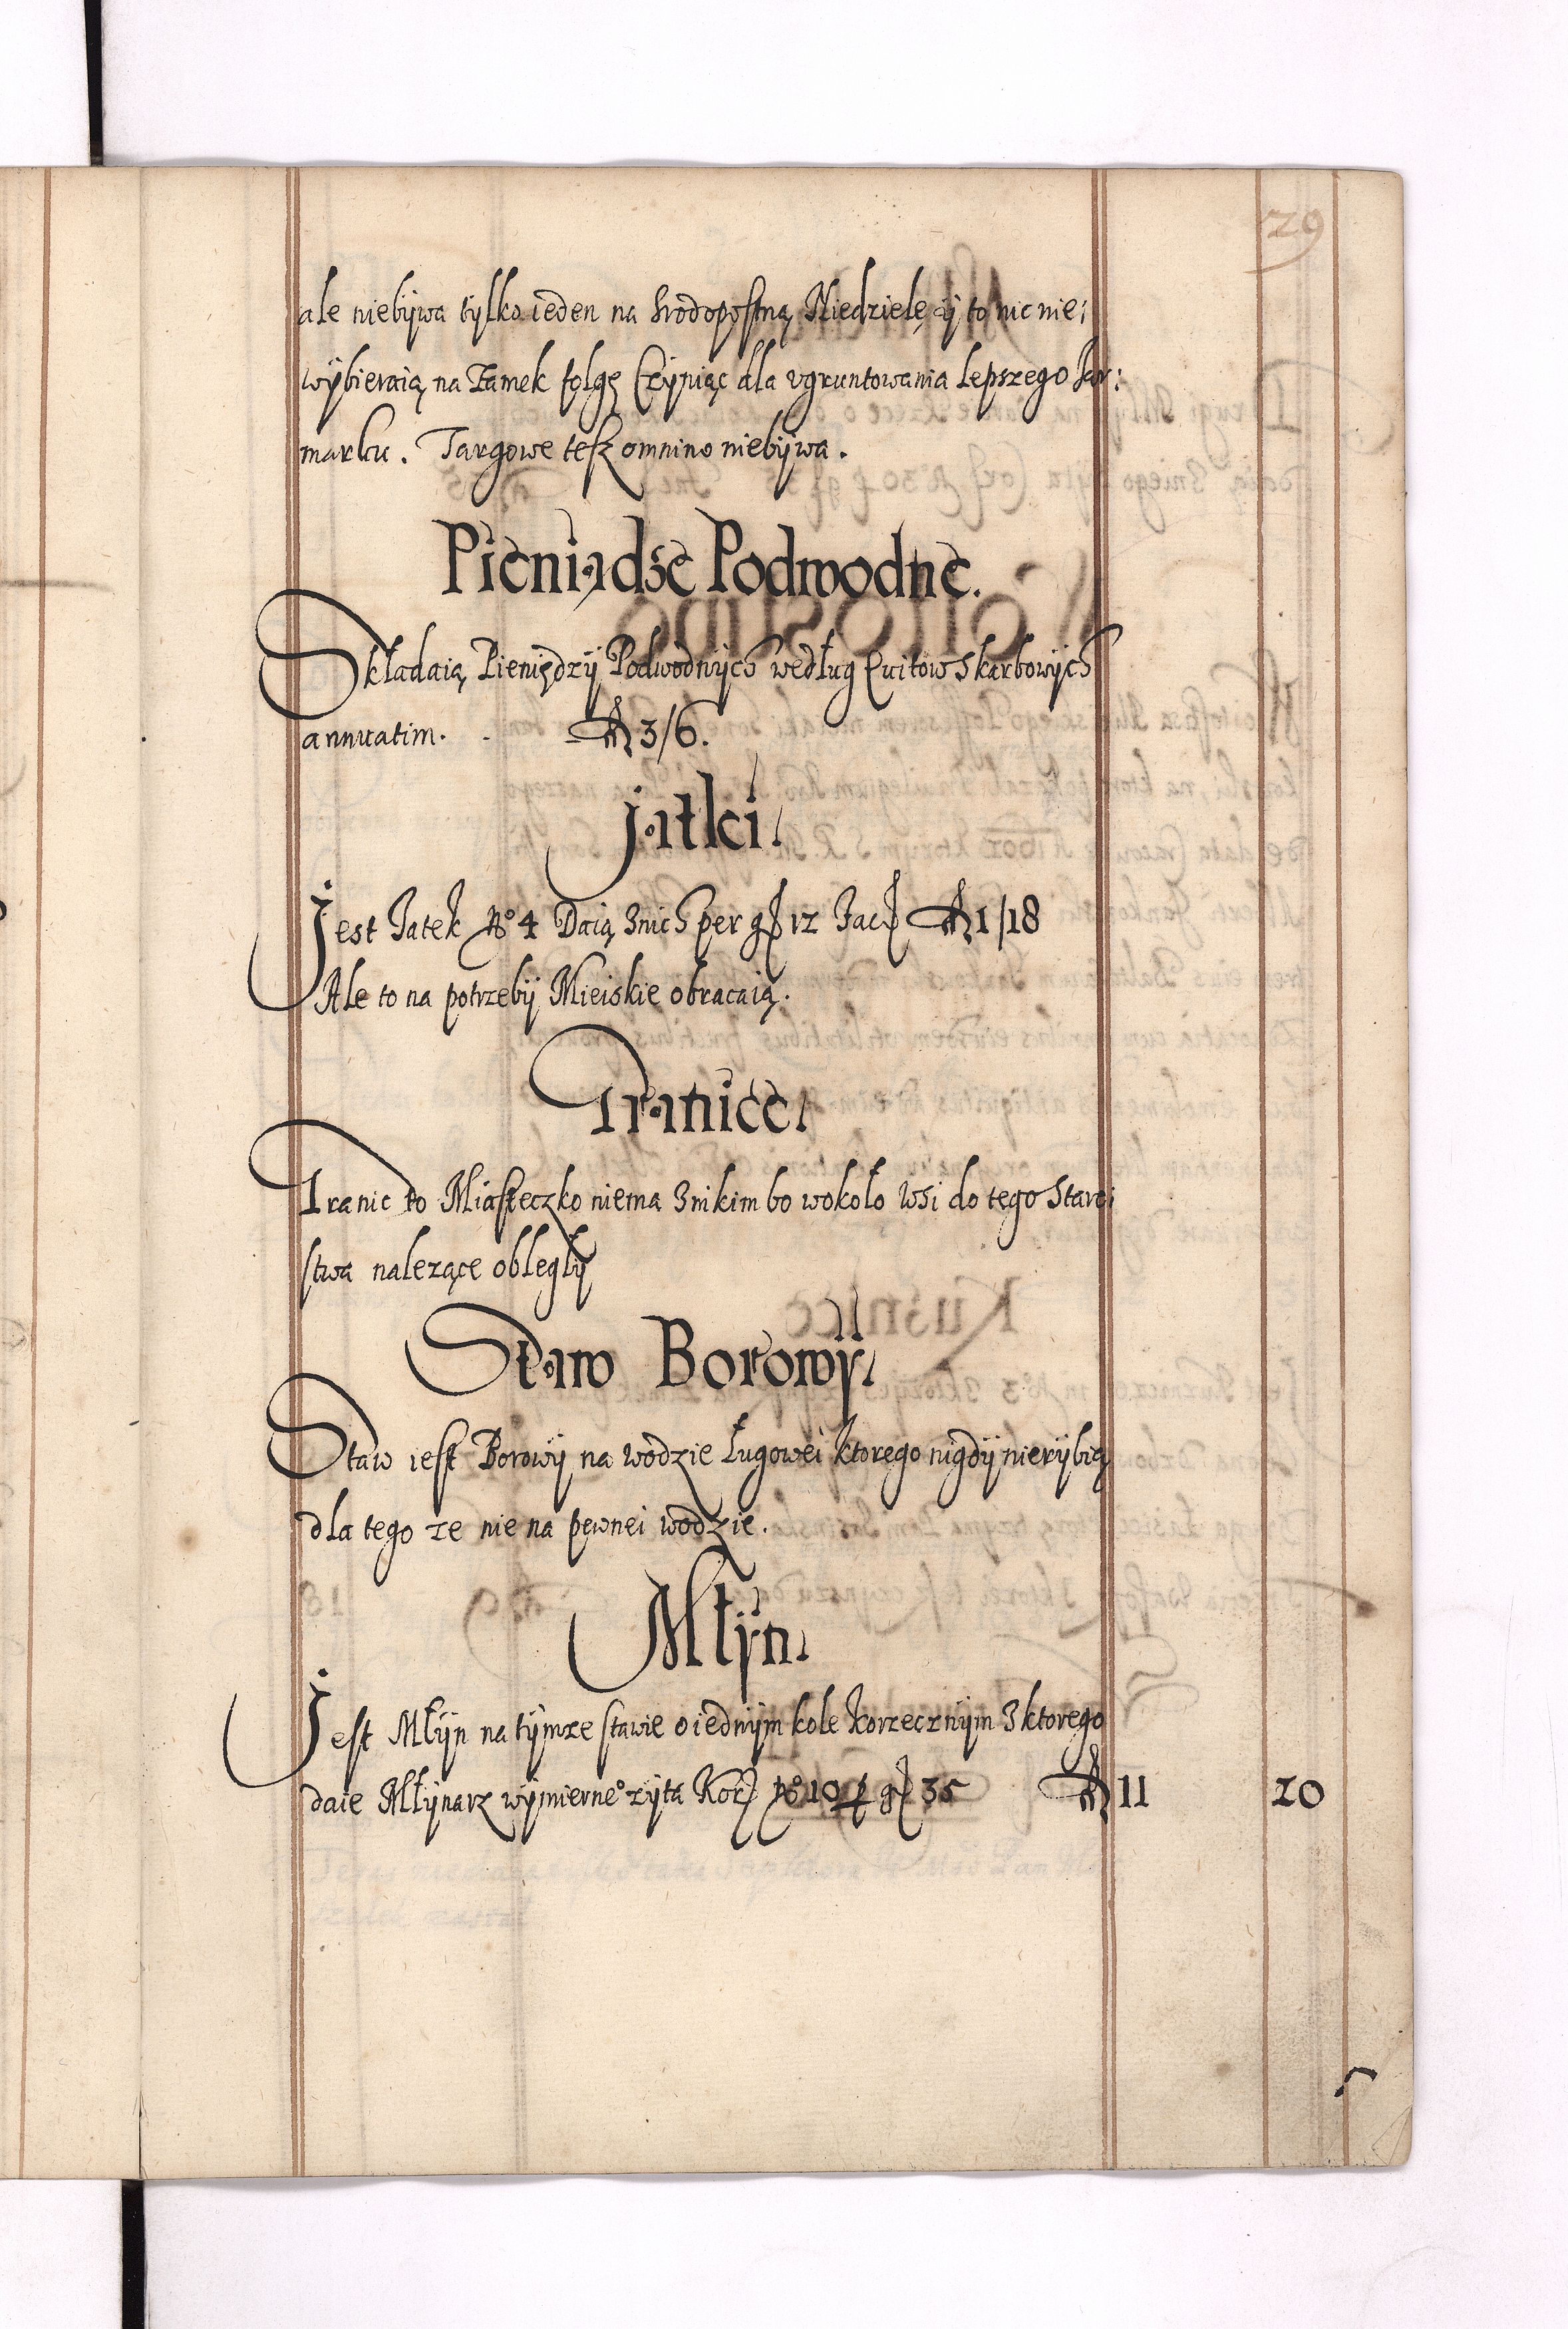 29
ale niebÿwa tÿlko ieden na Srodopostną Niedzielę ÿ to nic nie:
wÿbieraią na Zamek folgę Czÿniąc dla vgruntowania Lepszego Jar:
marku. Targowe tesz omnino niebÿwa.
Pieniądze Podwodne.
Składaią Pieniędzÿ Podwodnÿch według Quitow Skarbowÿch
annuatim. fl 3/6.
Jatki.
Jest Jatek No 4 Daią Znich per gr 12 Fac fl 1/18
Ale to na potrzebÿ Mieiskie obracaią.
Granice.
Granic to Miasteczko niema Znikim bo wokoło Wsi do tego Staro:
stwa nalezące obległÿ
Staw Borowÿ.
Staw iest Borowÿ na wodzie Ługowei ktorego nigdÿ nierÿbią
dla tego ze nie na pewnei wodzie.
Młÿn.
Jest Młÿn na tÿmze stawie o iednÿm kole korzecznÿm Zktorego
daie Młÿnarz wÿmierne° zÿta Kor No 10 p gr 35 fl 11 20